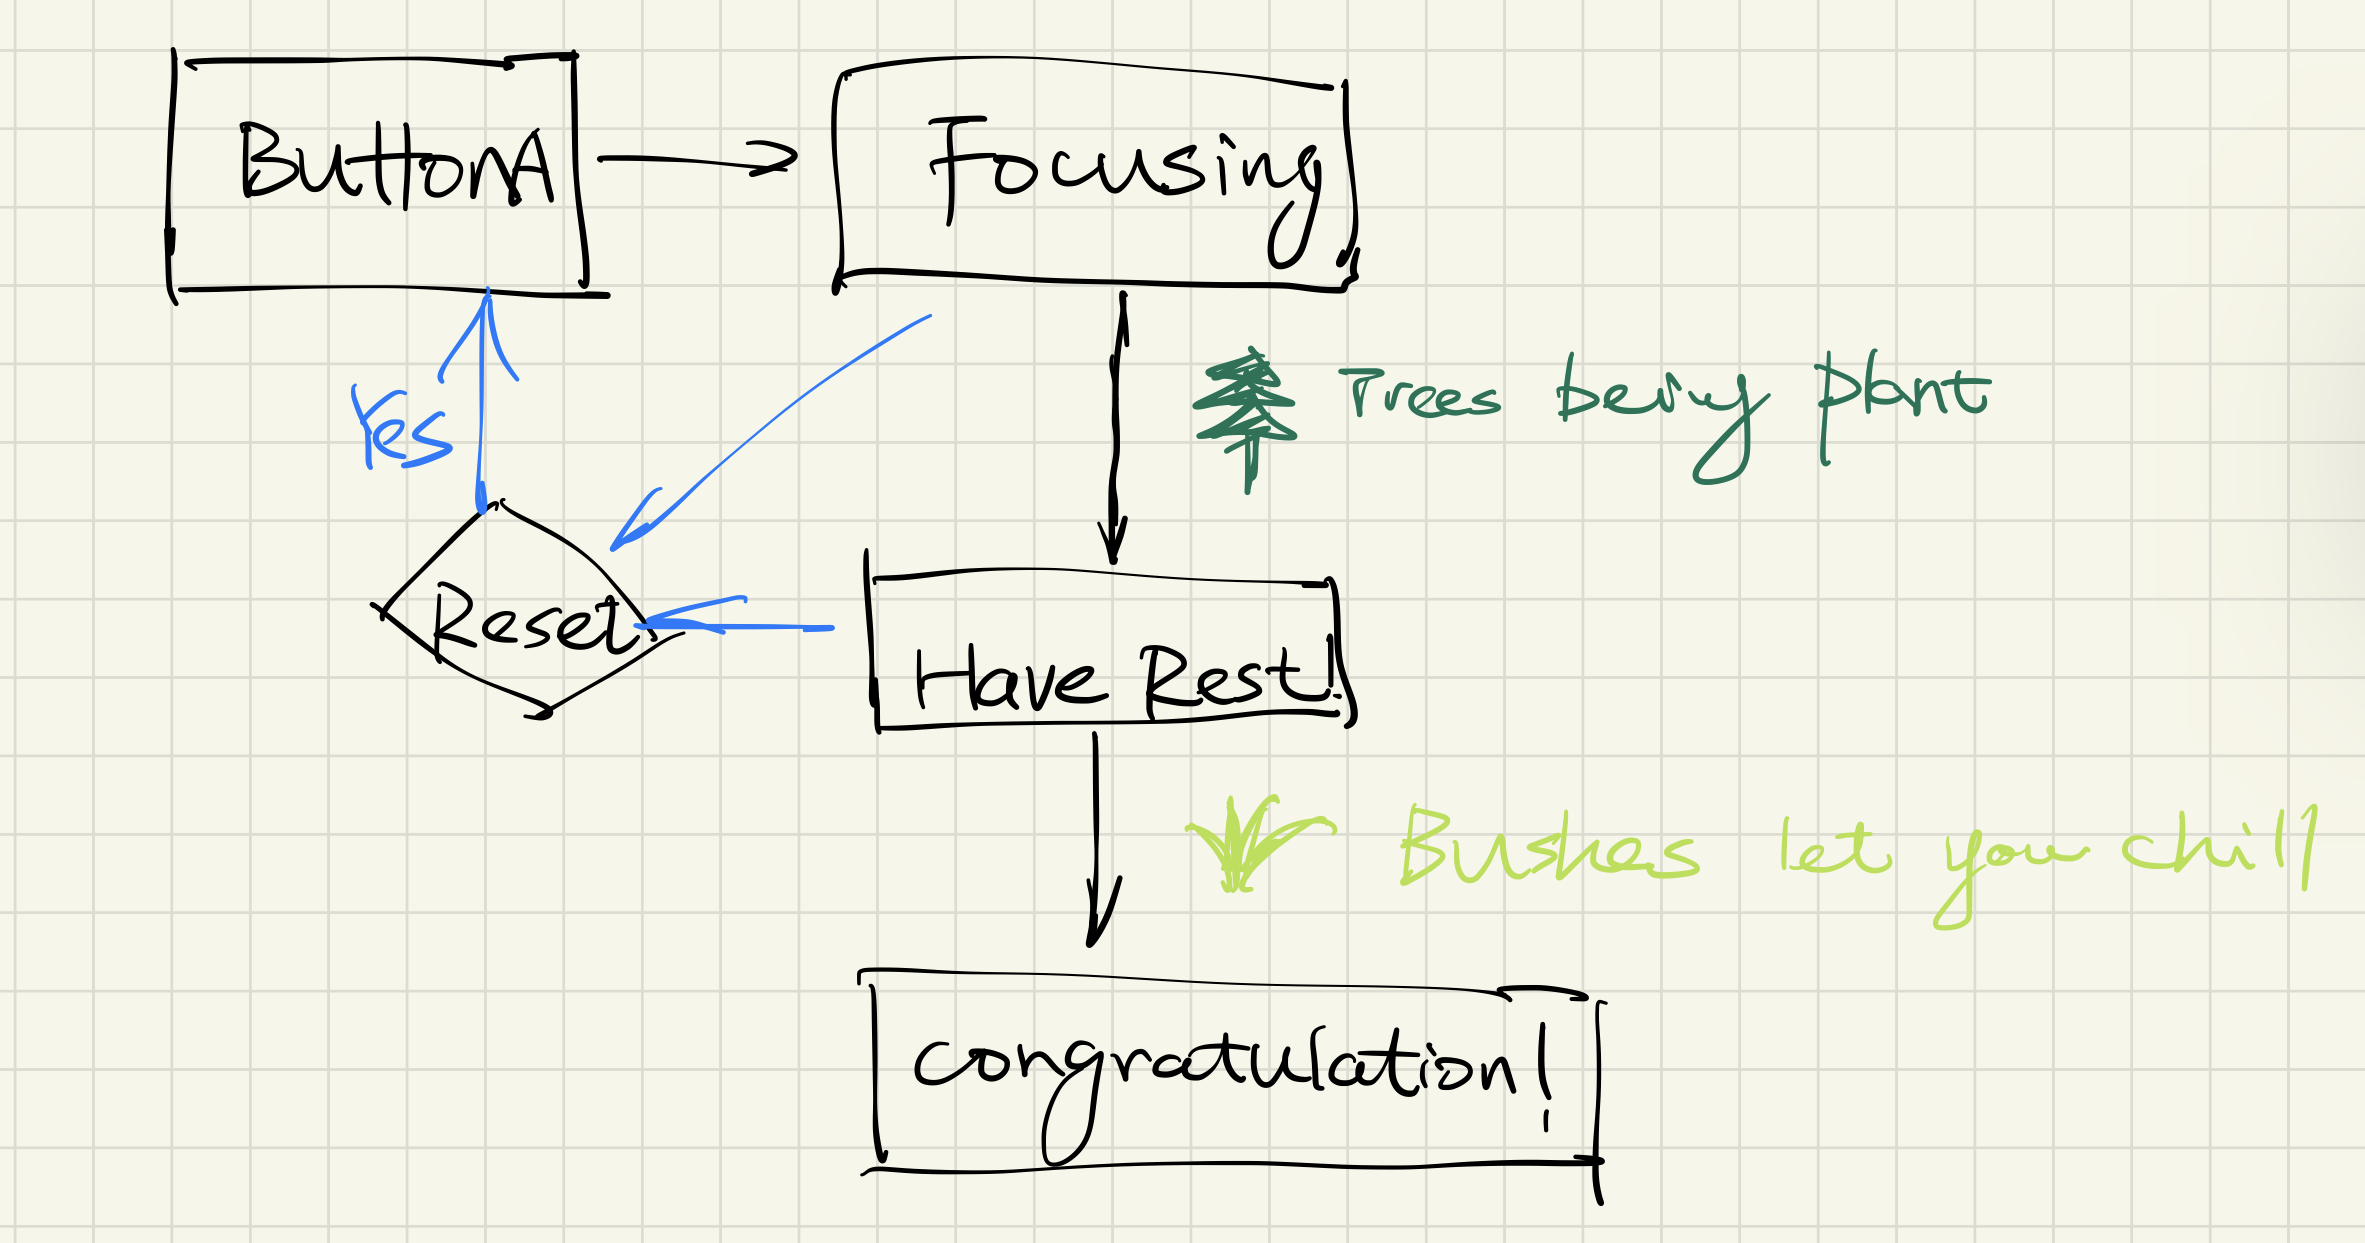 ButtonA
Focusing
Yes
Trees being plant
Reset
Have Rest!
Bushes let you chill
congratulation!